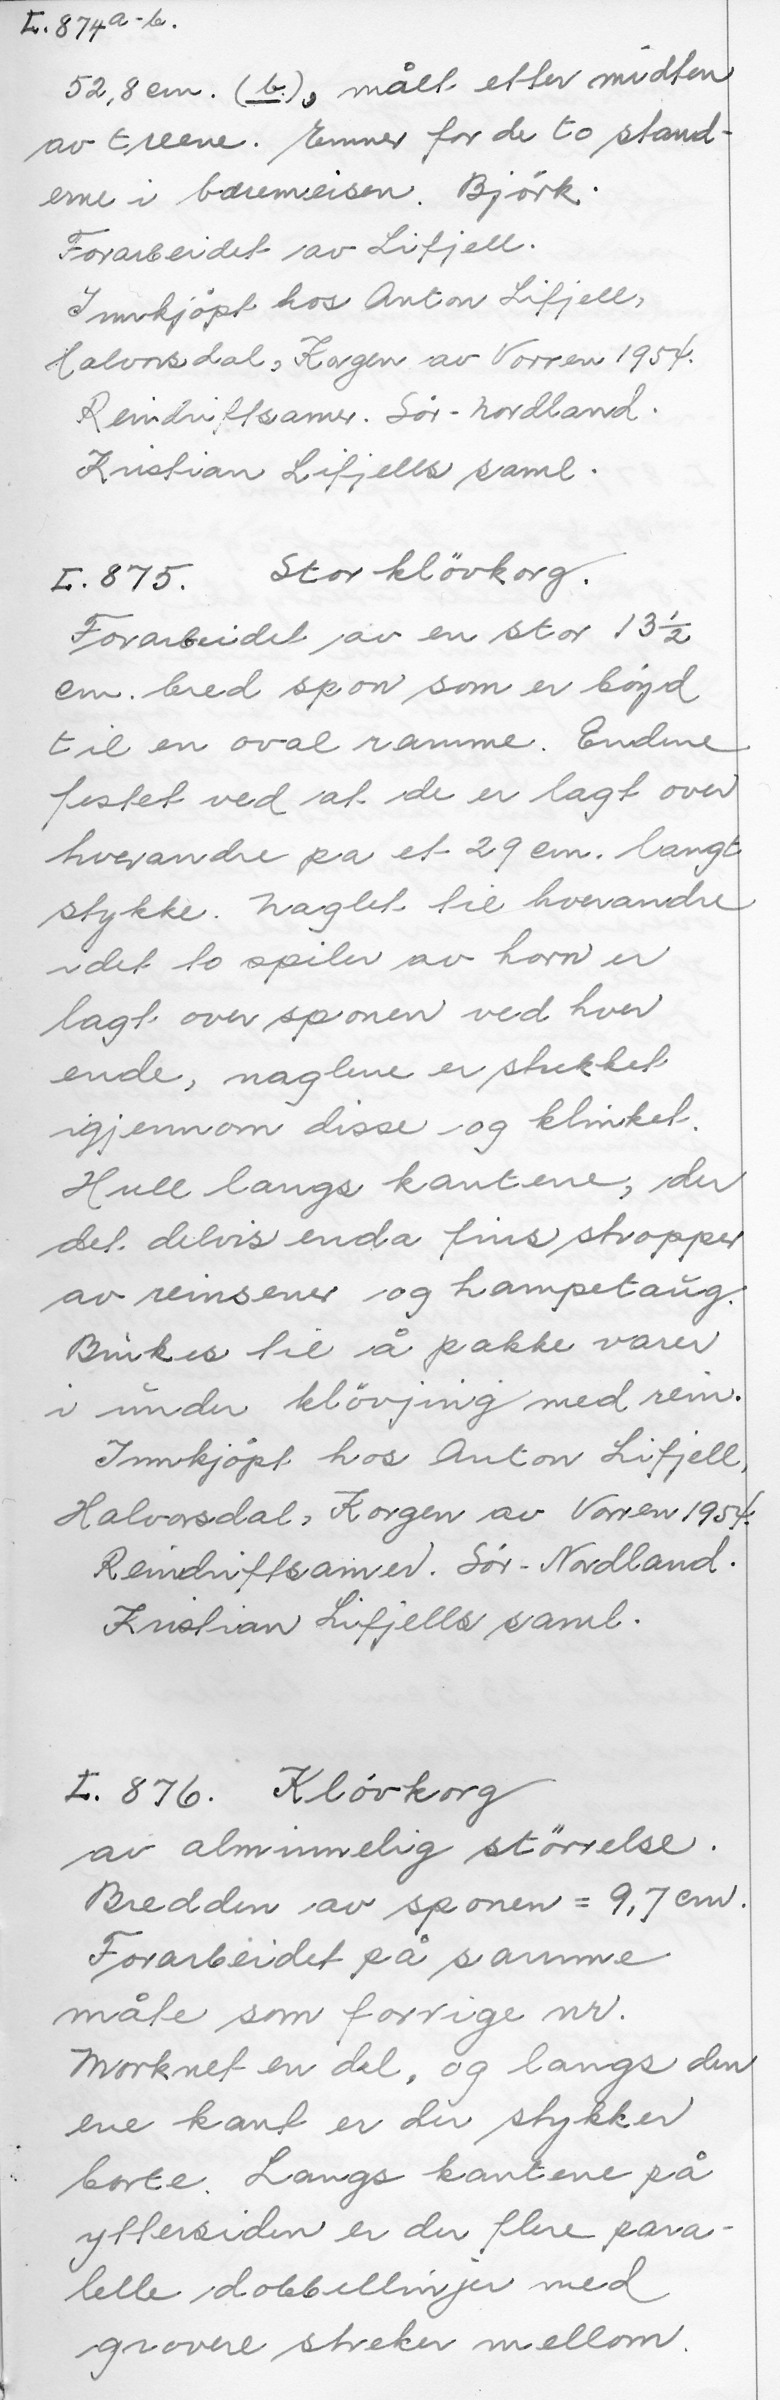 L. 874 a-b.
52,8 cm. (b.), målt etter midten
av treene. Emner for de to stand-
erne i bæremeisen. Björk.
Forarbeidet av Lifjell.
Innkjöpt hos Anton Lifjell,
Halvorsdal, Korgen av Vorren 1954.
Reindriftsamer. Sör-Nordland.
Kristian Lifjells saml.
L. 875. Stor klövkorg.
Forarbeidet av en stor 13½
cm. bred spon som er böyd
til en oval ramme. Endene
festet ved at de er lagt over
hverandre pa et 29 cm. langt
stykke. Naglet til hverandre
idet to spiler av horn er
lagt over sponen ved hver
ende, naglene er stukket
igjennom disse og klinket.
Hull langs kantene, der
det delvis enda fins stropper
av reinsener og hampetaug.
Brukes til å pakke varer
i under klövjing med rein.
Innkjöpt hos Anton Lifjell,
Halvorsdal, Korgen av Vorren 1954.
Reindriftsamer. Sör-Nordland.
Kristian Lifjells saml.
L. 876. Klövkorg
av alminnelig störrelse.
Bredden av sponen = 9,7 cm.
Forarbeidet på samme
måte som forrige nr.
Morknet en del, og langs den
ene kant er der stykker
borte. Langs kantene på
yttersiden er der flere para-
lelle dobbellinjer med
grovere streker mellom.